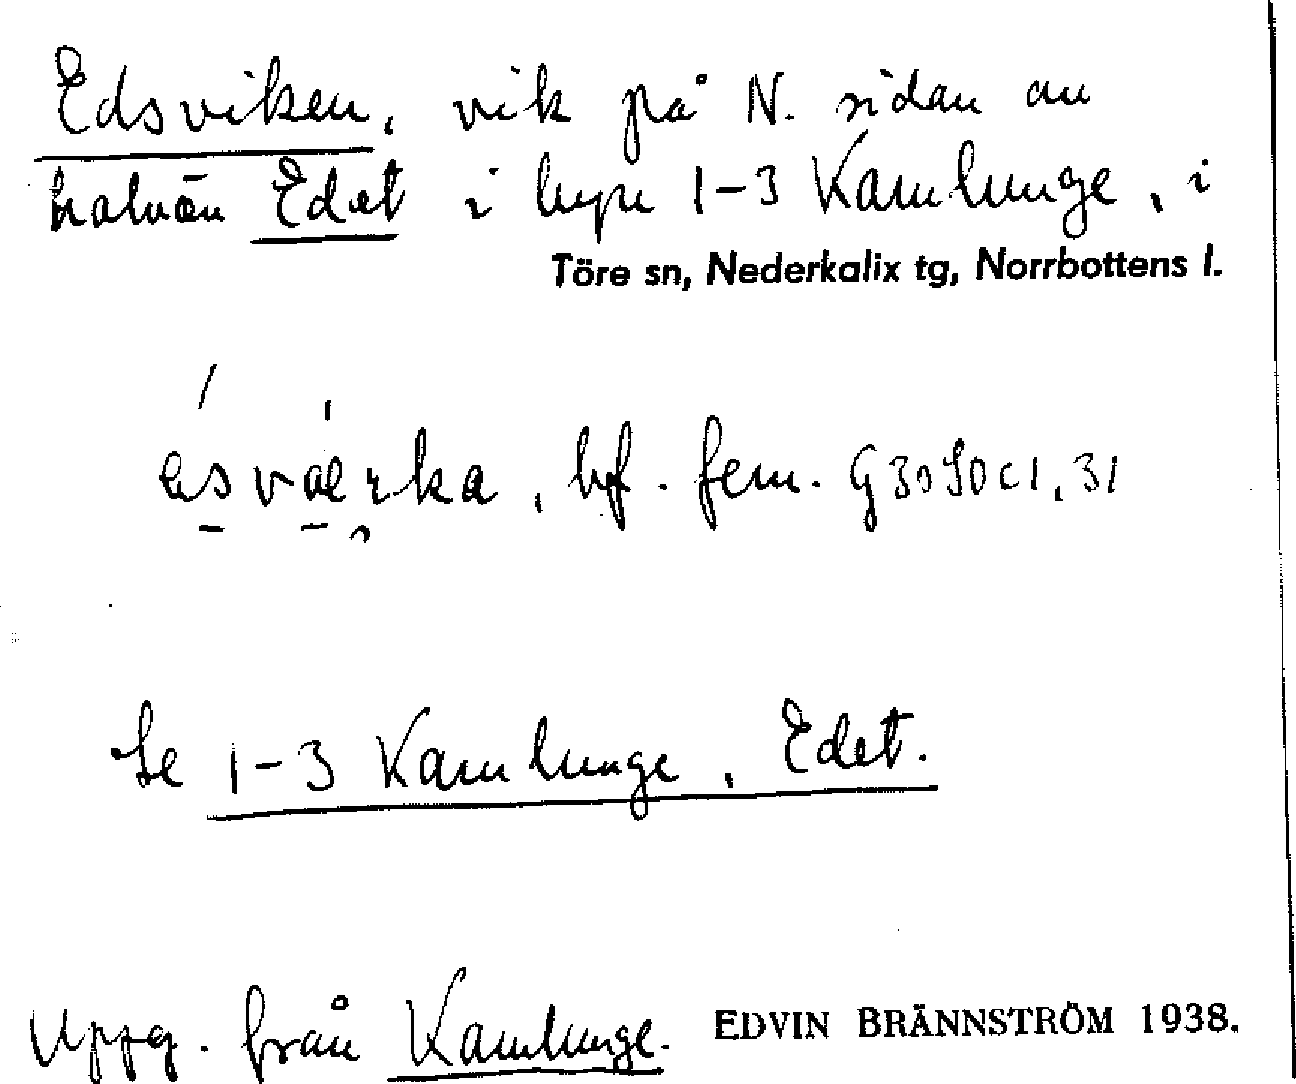 Edsviken, vik på N. sidan av
halvön Edet i byn 1-3 Kamlunge, i
Töre sn, Nederkalix tg, Norrbottens l.
bf. fem. G3090c1,31
Se 1-3 Kamlunge, Edet.
Uppg. från Kamlunge. EDVIN BRÄNNSTRÖM 1938.